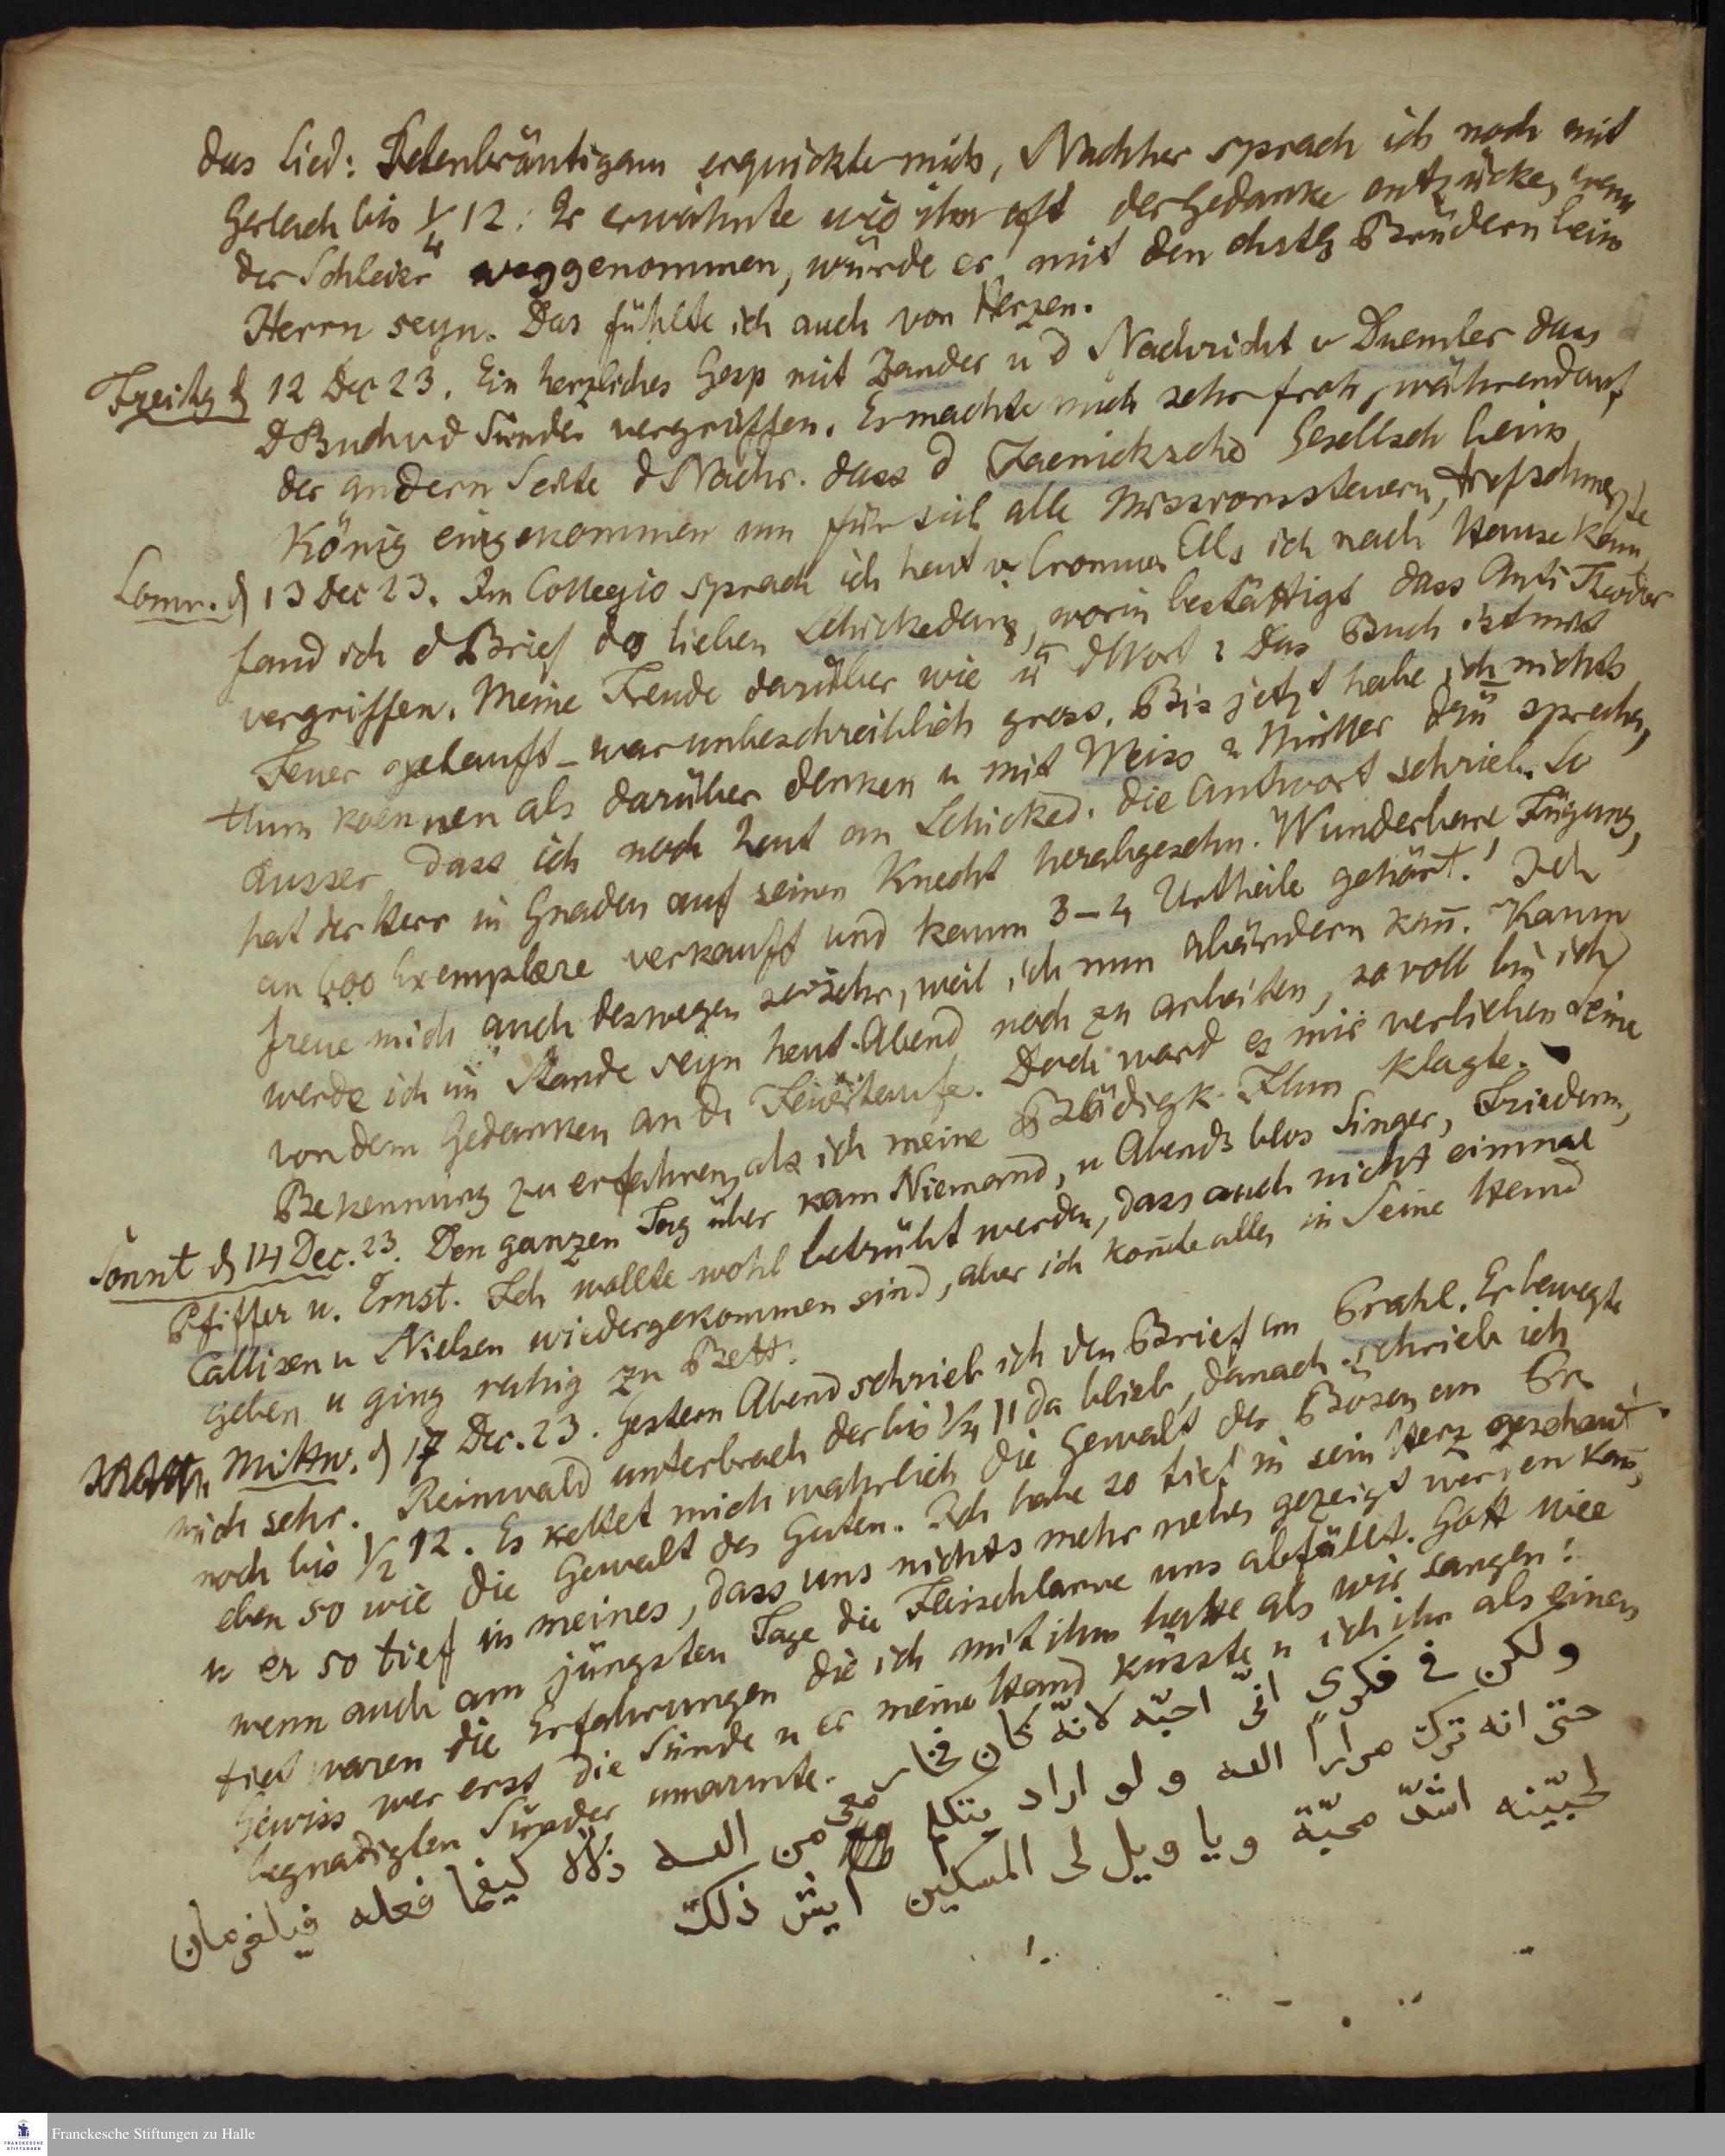 das Lied: Seelenbräutigam erquickte mich, Nachher sprach ich noch mit
Gerlach bis 1/4 12. Er erwähnte wie ihn oft der Gedanke entzücke, wenn
der Schleier weggenommen, würde er mit den chstl Brüdern beim
Herrn seyn. Das fühlte ich auch von Herzen.
Freitg d 12 Dec 23. Ein herzliches Gesp mit Zander u d Nachricht v Duemler dass
d Buch v d Sünde vergriffen. Er machte mich sehr froh, während auf
der andern Seite d Nachr. dass d Jaenicksche Gesellsch beim
König eingekommen um für sich alle Missionssteuern, tief schmerzte
Sonn. d 13 Dec 23. Im Collegio sprach ich heut v Als ich nach Hause kam
fand ich d Brief des lieben Schickedanz, worin bestättigt dass Anti Theodor
vergriffen. Meine Freude darüber wie ü d Wort: Das Buch ist mit
Feuer getauft – war unbeschreiblich gross. Bis jetzt habe ich nichts
thun koennen als darüber denken u mit Weiss u Müller dzü sprechen,
ausser dass ich noch heut an Schicked. die Antwort schrieb. So
hat der Herr in Gnaden auf seinen Knecht herabgesehn. Wunderbare Fügung,
an 600 Exemplare verkauft und kaum 3–4 Urtheile gehört! Ich
freue mich auch deswegen so sehr, weil ich nun abändern kan̄. Kaum
werde ich im Stande seyn heut Abend noch zu arbeiten, so voll bin ich
von dem Gedanken an di Feuertaufe. Doch ward es mir verliehen Seine
Bekennung zu erfahren, als ich meine Blödigk. Ihm klagte.
Sonnt d 14 Dec. 23. Den ganzen Tag über kam Niemand, u Abends blos Singer, Friederm,
Pfiffer u. Ernst. Ich wollte wohl betrübt werden, dass auch nicht einmal
Callisen u Nielsen wiedergekommen sind, aber ich kon̄te alles in Seine Hand
geben u ging ruhig zu Bett.
Mittw. d 17 Dec. 23. Gestern Abend schrieb ich den Brief an Grahl. Er bewegte
mich sehr. Reinwald unterbrach der bis 1/4 11 da blieb, danach schrieb ich
noch bis 1/2 12. Es kettet mich wahrlich die Gewalt des Bosen an Gr.
eben so wie die Gewalt des Guten. Ich habe so tief in sein Herz geschaut
u er so tief in meines, dass uns nichts mehr neues gezeigt werden kan̄,
wenn auch am jüngsten Tage die Fleischlarve uns abfällt. Gott wie
tief waren die Erfahrungen die ich mit ihm hatte als wir sangen:
Gewiss wer erst die Sünde u er meine Hand küsste u ich ihn als einen
begnadigten Sünder umarmte.
ولكن في فكرى انّى احبّه لانّه كان
حتى انه ترك مراراً الله ولو اراد يتكلم معى من الله كيفما فعله
لحبّيته اشدّ محبّة ويا ويل لى المسكين ايش ذلك
Franckesche Stiftungen zu Halle